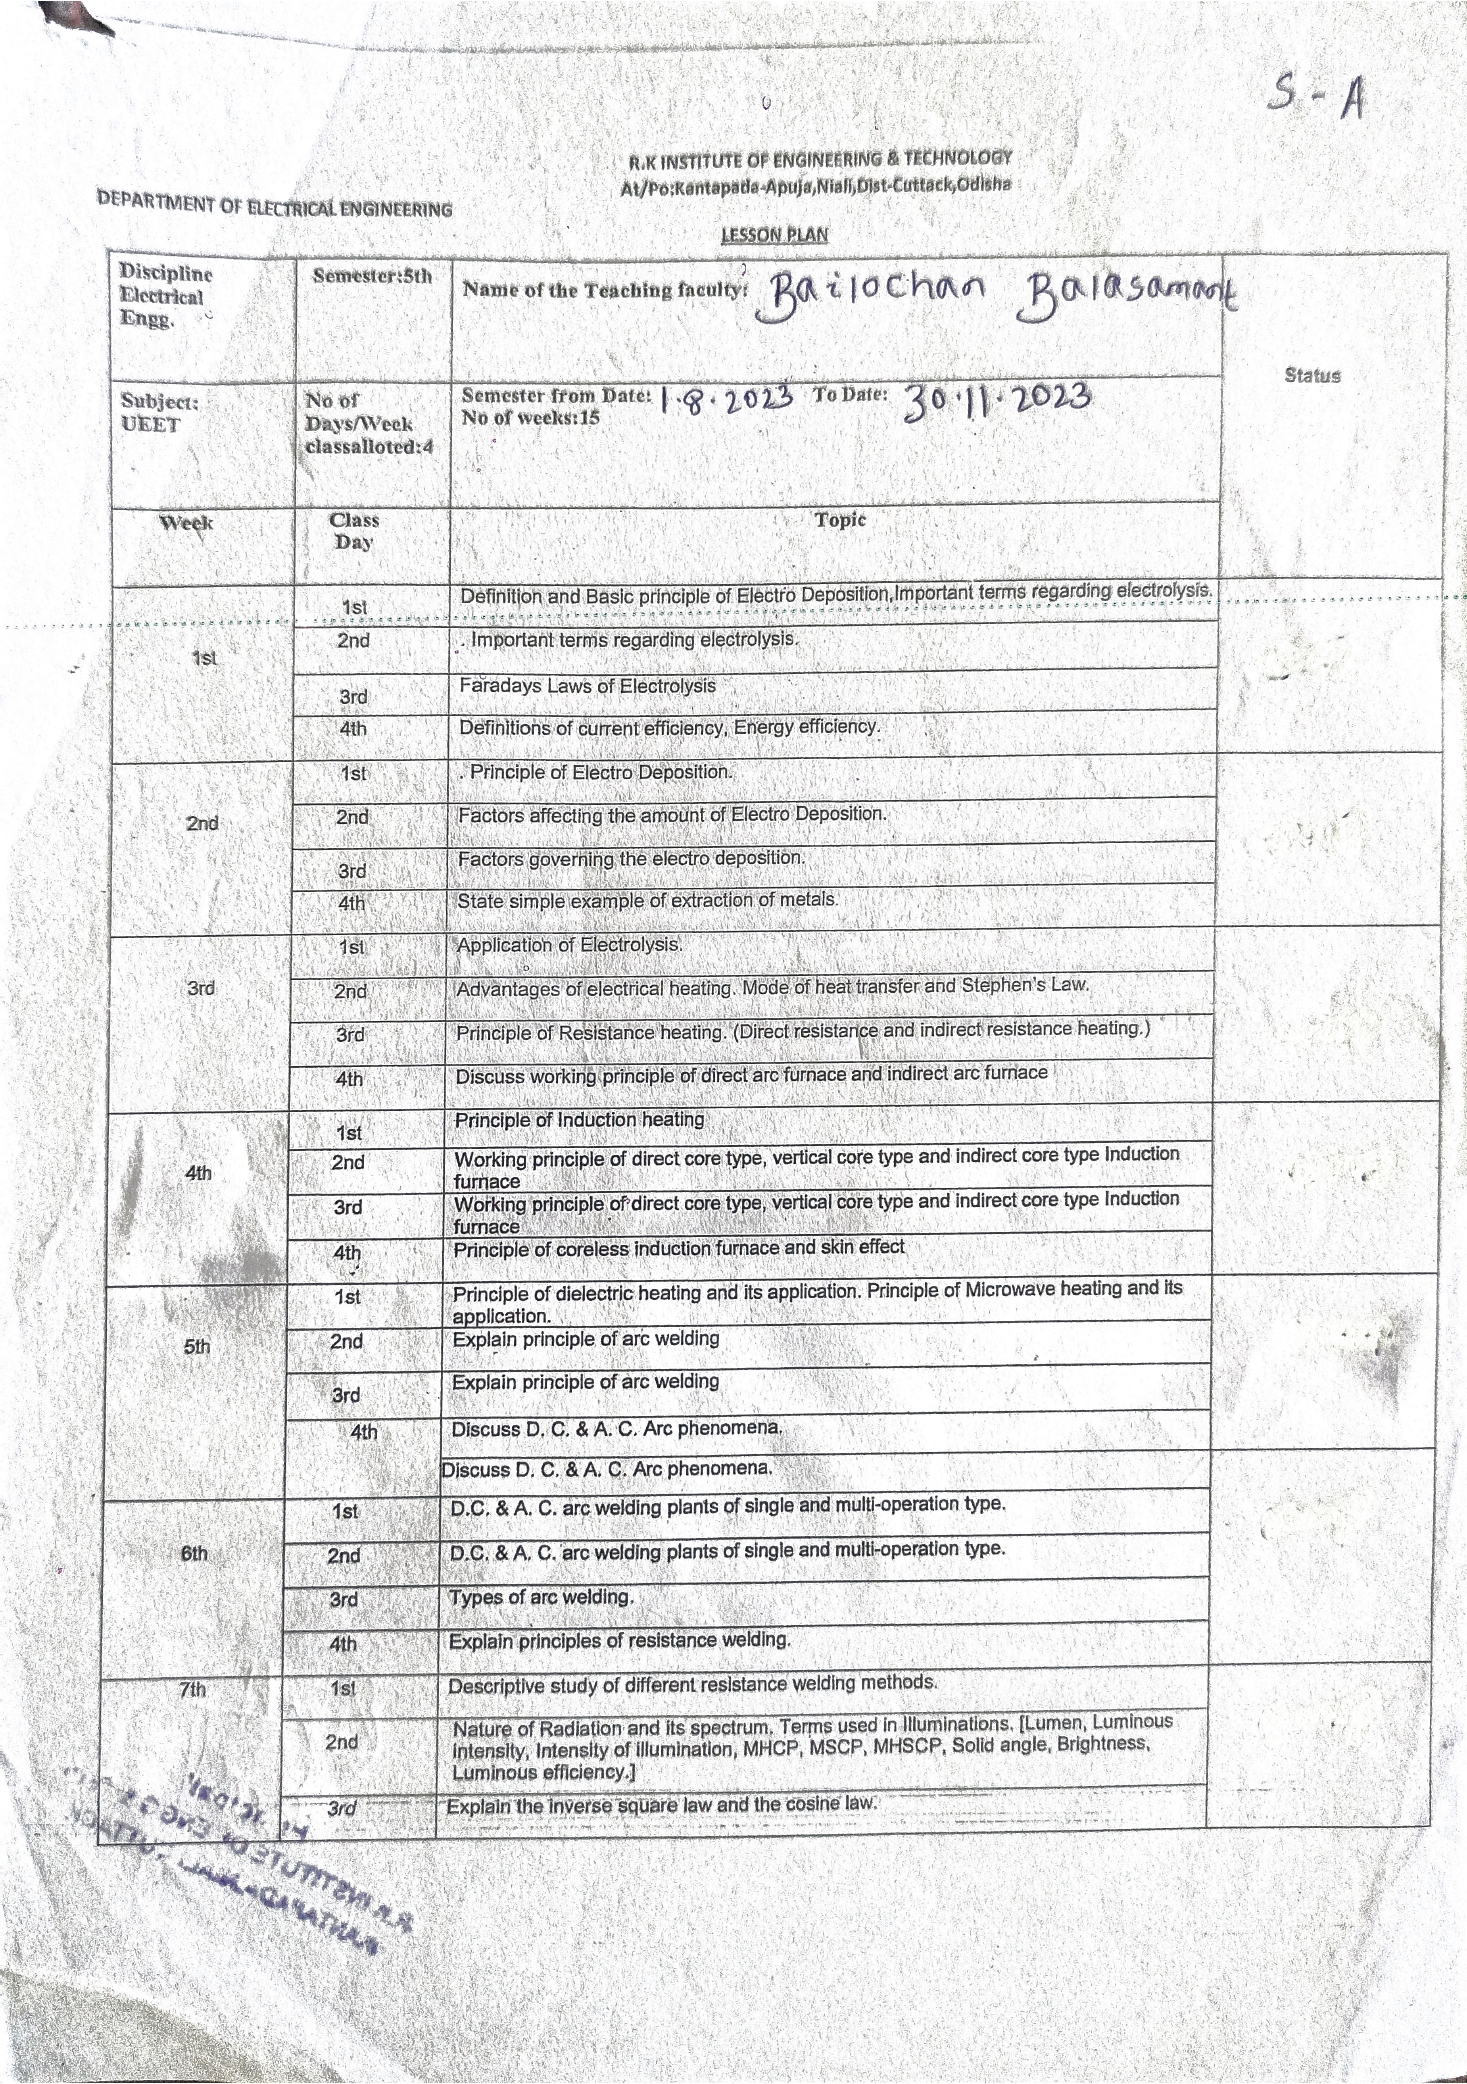 S - A
R.K INSTITUTE OF ENGINEERING & TECHNOLOGY
At/Po:Kantapada-Apuja,Niali,Dist-Cuttack,Odisha
DEPARTMENT OF ELECTRICAL ENGINEERING
LESSON PLAN
Discipline
Electrical
Engg.
Semester:5th
Name of the Teaching faculty: Bailochan Balasamant
Status
Subject:
UEET
No of
Days/Week
classalloted:4
Semester from Date: 1.8.2023 To Date: 30.11.2023
No of weeks:15
Week
Class
Day
Topic
1st
1st
Definition and Basic principle of Electro Deposition,Important terms regarding electrolysis.
2nd
. Important terms regarding electrolysis.
3rd
Faradays Laws of Electrolysis
4th
Definitions of current efficiency, Energy efficiency.
2nd
1st
. Principle of Electro Deposition.
2nd
Factors affecting the amount of Electro Deposition.
3rd
Factors governing the electro deposition.
4th
State simple example of extraction of metals.
3rd
1st
Application of Electrolysis.
2nd
Advantages of electrical heating. Mode of heat transfer and Stephen's Law.
3rd
Principle of Resistance heating. (Direct resistance and indirect resistance heating.)
4th
Discuss working principle of direct arc furnace and indirect arc furnace
4th
1st
Principle of Induction heating
2nd
Working principle of direct core type, vertical core type and indirect core type Induction
furnace
3rd
Working principle of direct core type, vertical core type and indirect core type Induction
furnace
4th
Principle of coreless induction furnace and skin effect
5th
1st
Principle of dielectric heating and its application. Principle of Microwave heating and its
application.
2nd
Explain principle of arc welding
3rd
Explain principle of arc welding
4th
Discuss D. C. & A. C. Arc phenomena.
Discuss D. C. & A. C. Arc phenomena.
6th
1st
D.C. & A. C. arc welding plants of single and multi-operation type.
2nd
D.C. & A. C. arc welding plants of single and multi-operation type.
3rd
Types of arc welding.
4th
Explain principles of resistance welding.
7th
1st
Descriptive study of different resistance welding methods.
2nd
Nature of Radiation and its spectrum. Terms used in Illuminations. [Lumen, Luminous
intensity, Intensity of illumination, MHCP, MSCP, MHSCP, Solid angle, Brightness,
Luminous efficiency.]
3rd
Explain the inverse square law and the cosine law.
R.K INSTITUTE OF ENGG